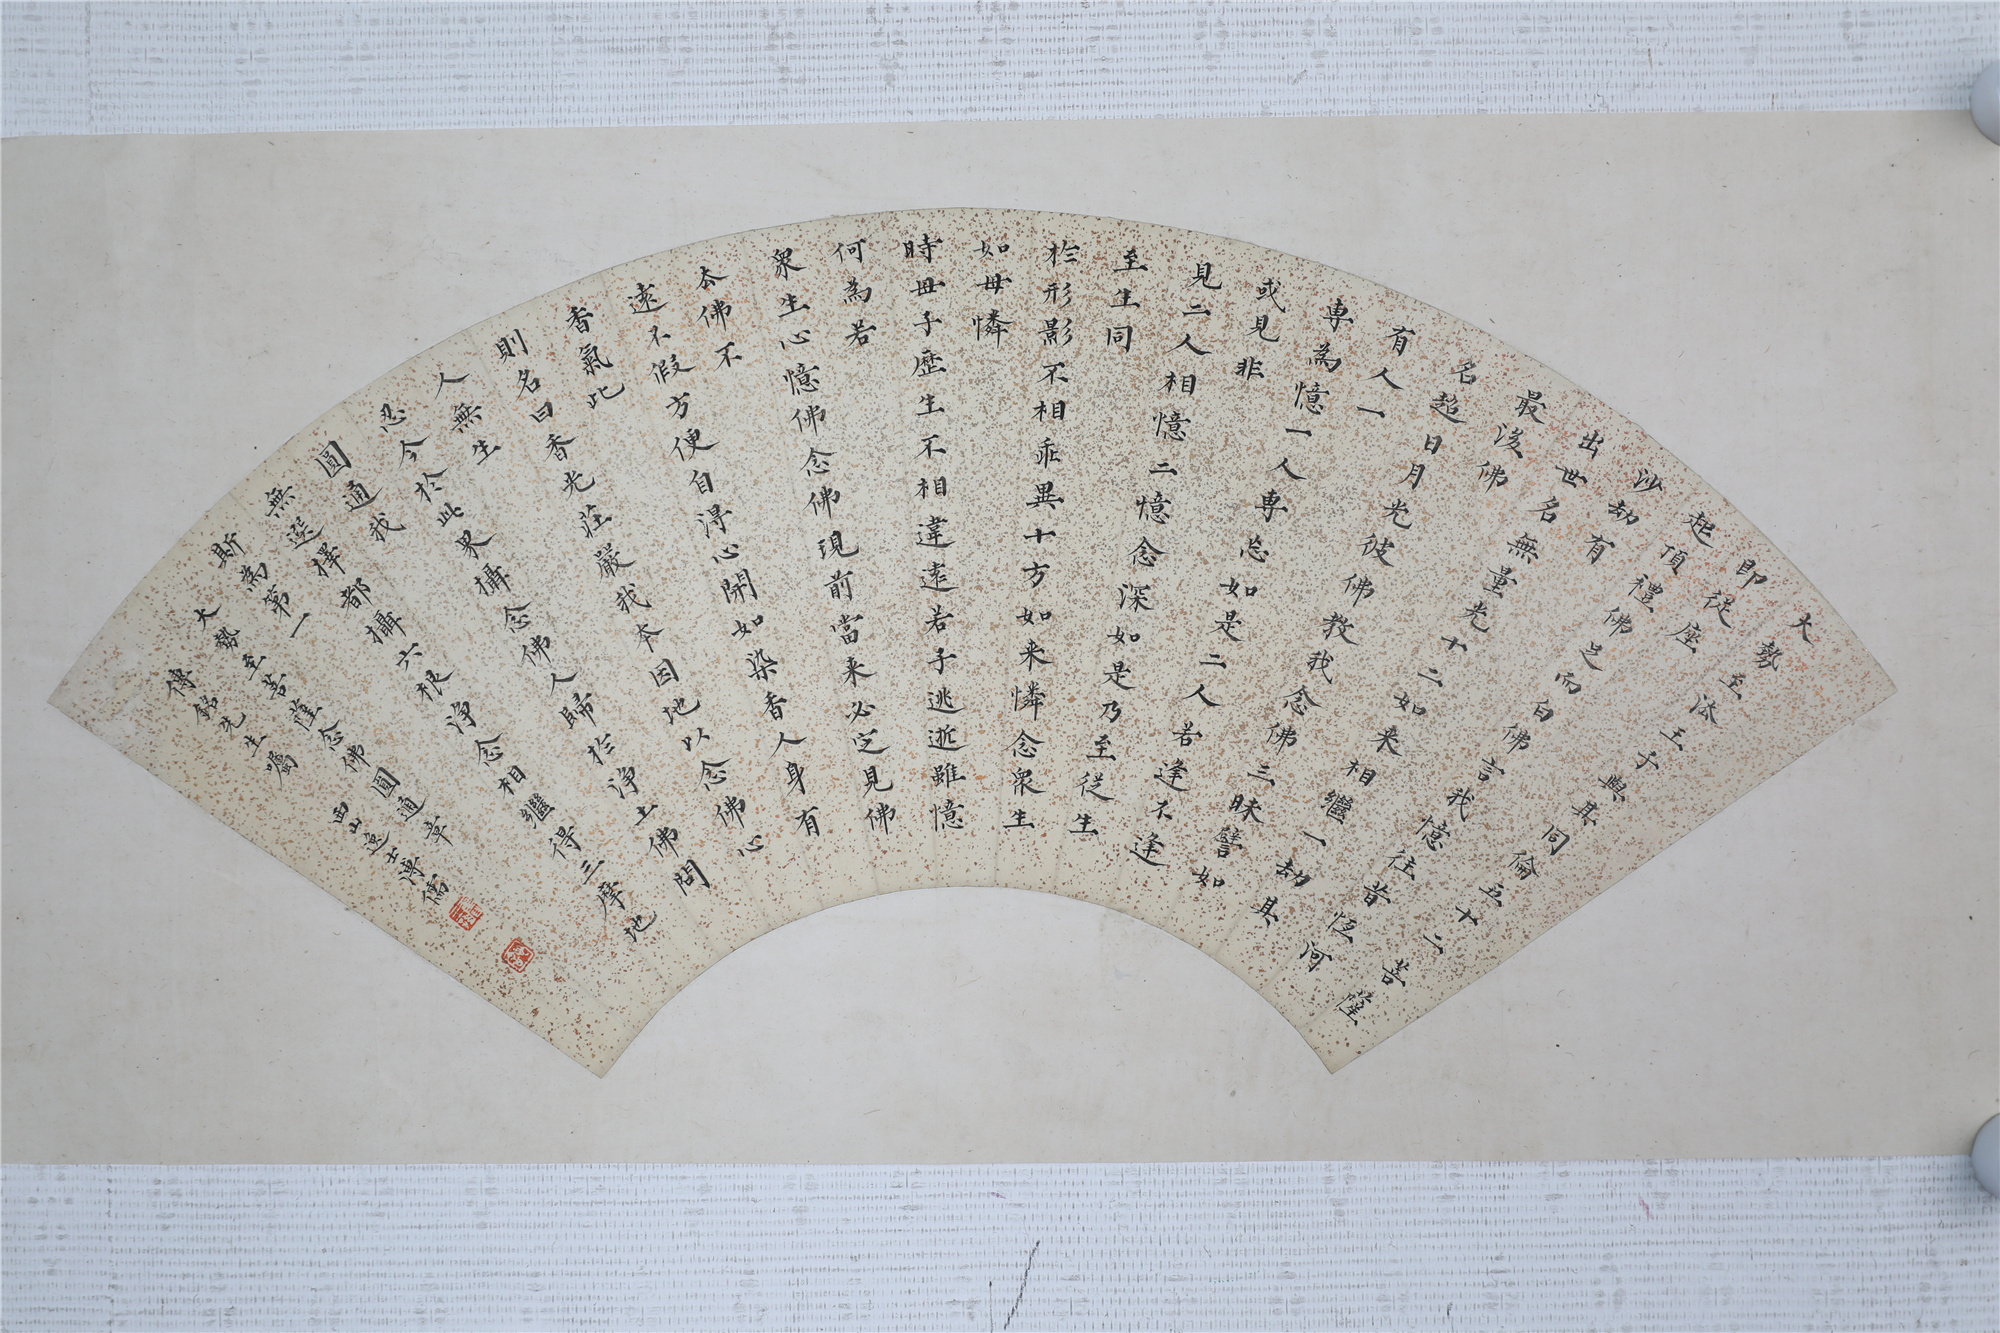 大勢至法王子與其同倫五十二菩薩
即從座
起頂禮佛足而白佛言我憶往昔恆河
沙劫有
出世名無量光十二如來相繼一劫其
最後佛
名超日月光彼佛教我念佛三昧譬如
有人一
專為憶一人專忘如是二人若逢不逢
或見非
見二人相憶二憶念深如是乃至從生
至生同
於形影不相乖異十方如來憐念眾生
如母憐
時母子歷生不相違遠若子逃逝雖憶
何為若
眾生心憶佛念佛現前當來必定見佛
去佛不
遠不假方便自得心開如染香人身有
香氣此
則名曰香光莊嚴我本因地以念佛心
人無生
忍今於此界攝念佛人歸於淨土佛問
圓通我
無選擇都攝六根淨念相繼得三摩地
斯為第一
大勢至菩薩念佛圓通章
傳銘先生囑 西山逸士溥儒